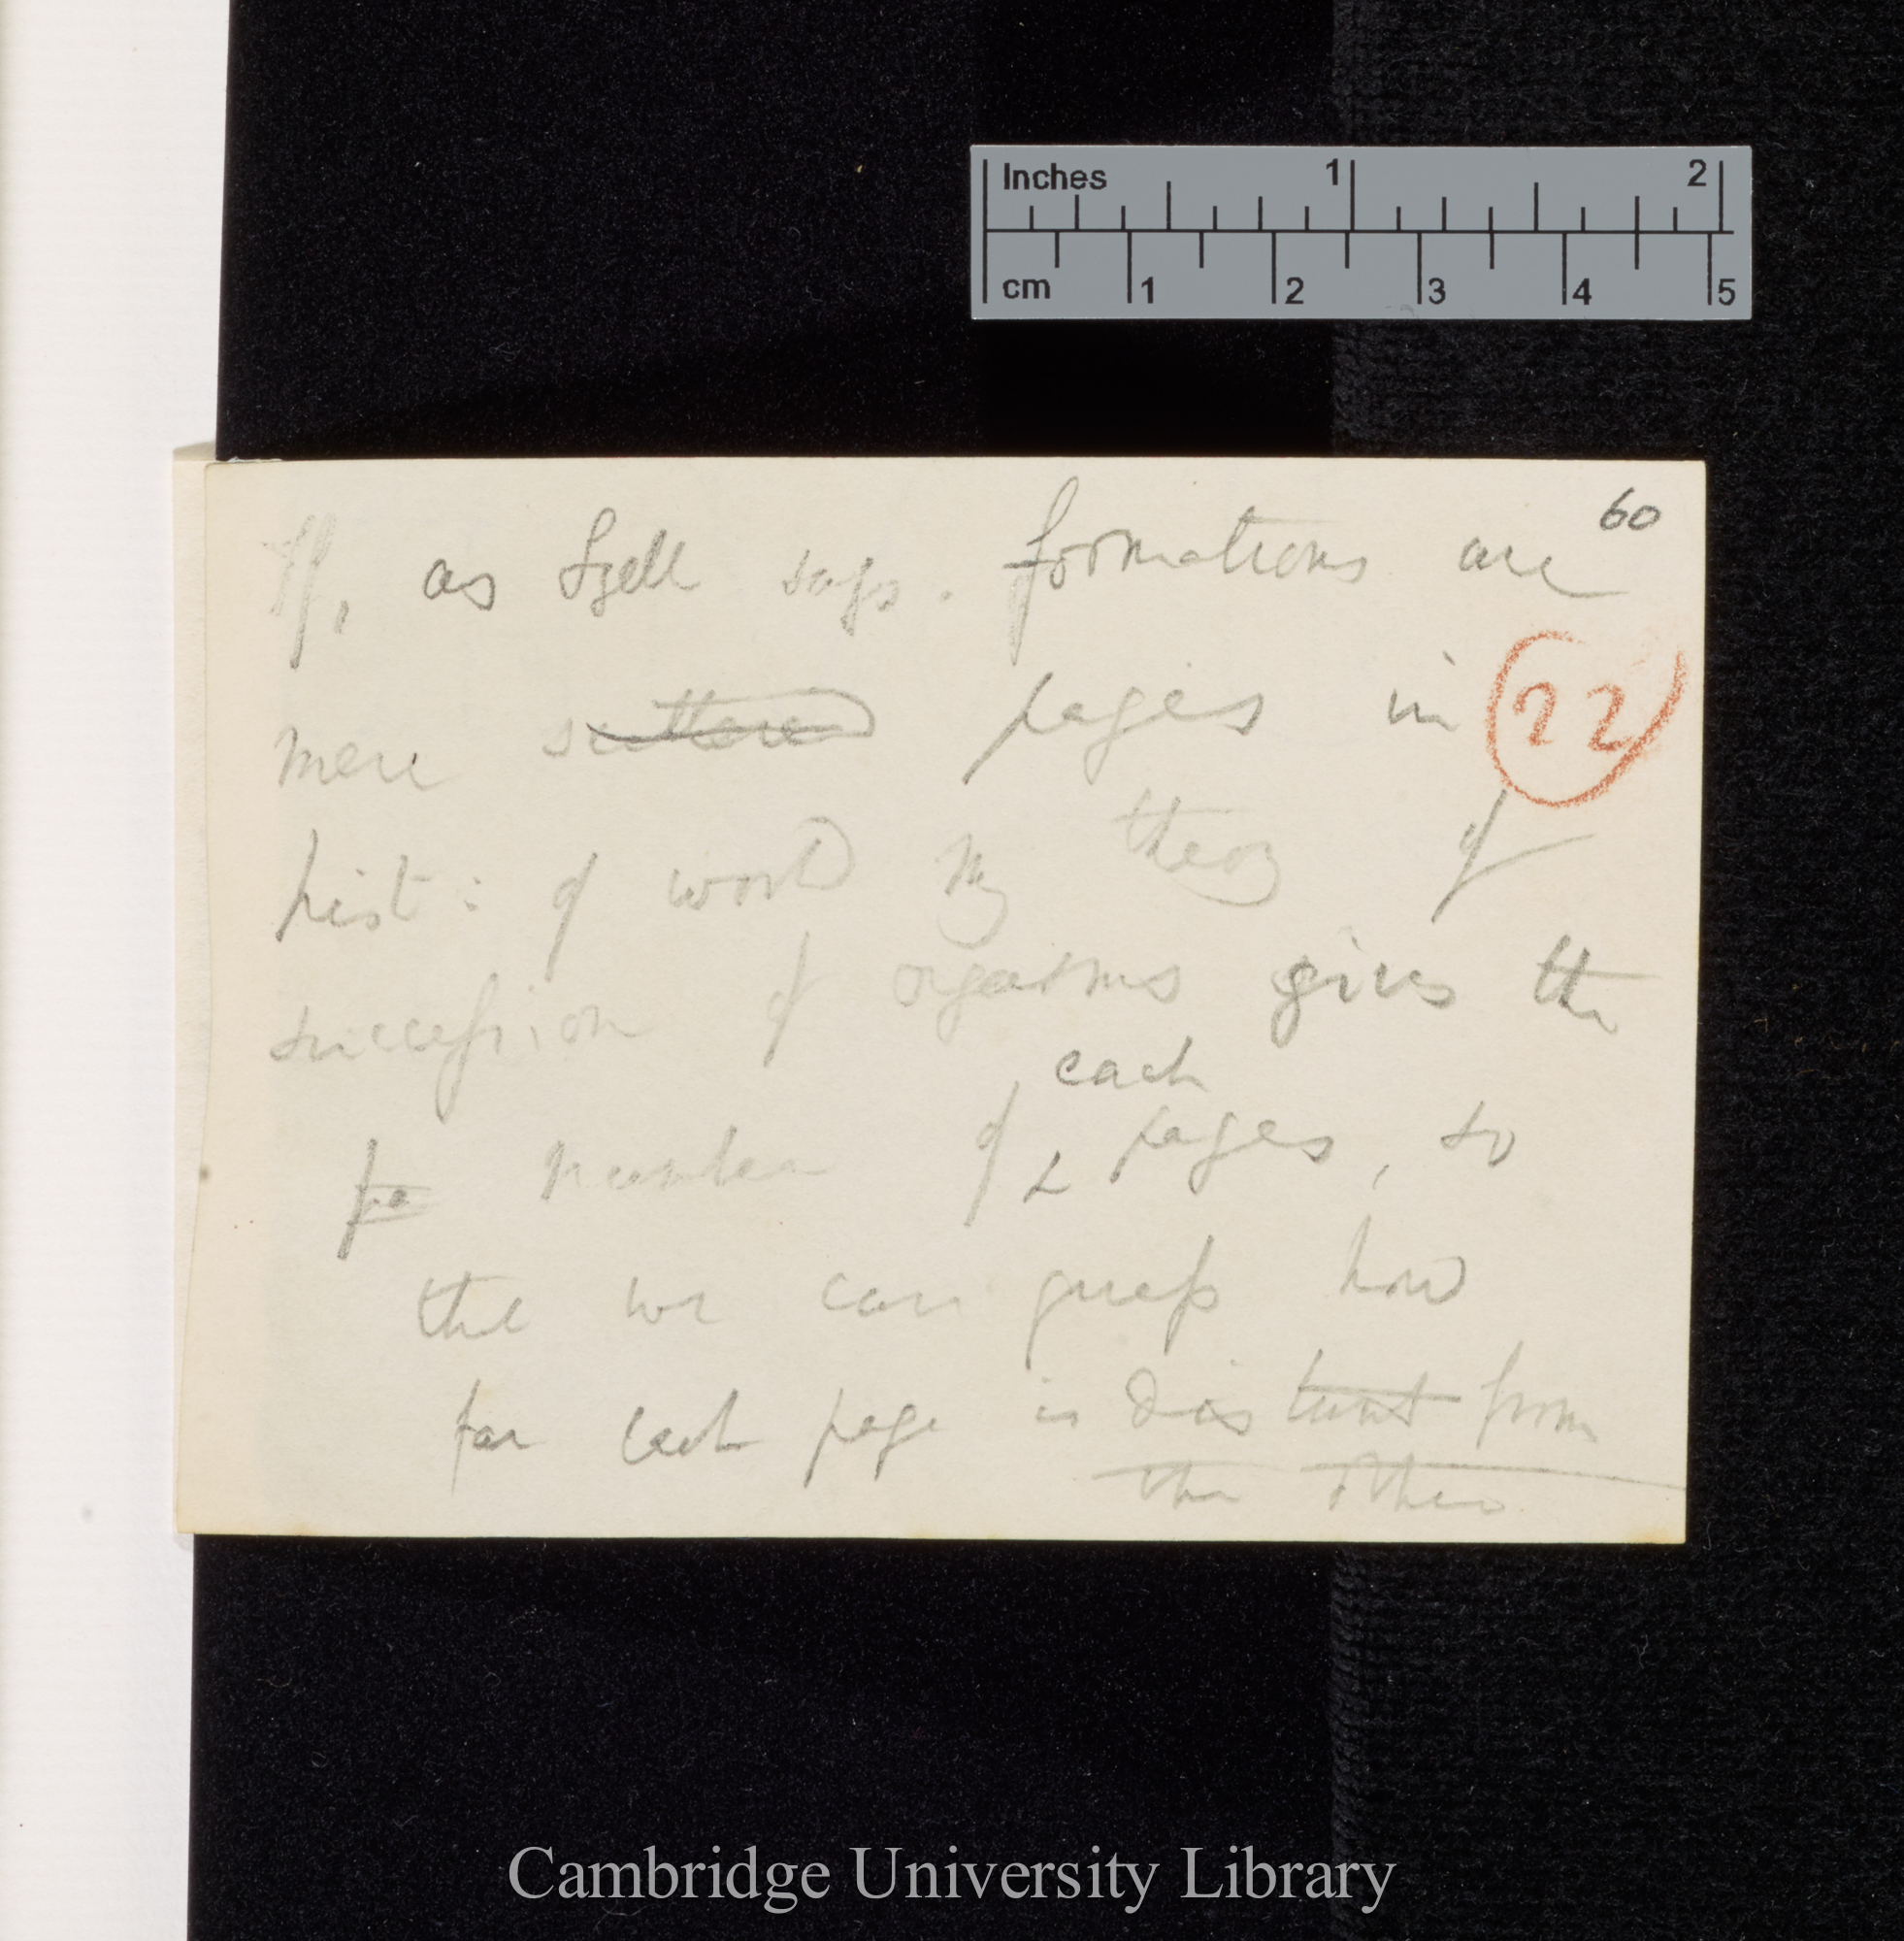 Inches 1 2
cm 1 2 3 4 5
60
If, as Lyell says. formations are
mere scattered pages in
22
hist: of world My theory of
succession of organisms gives the
number of each pages, so
the we can guess how
far each page is distant from
the others
Cambridge University Library